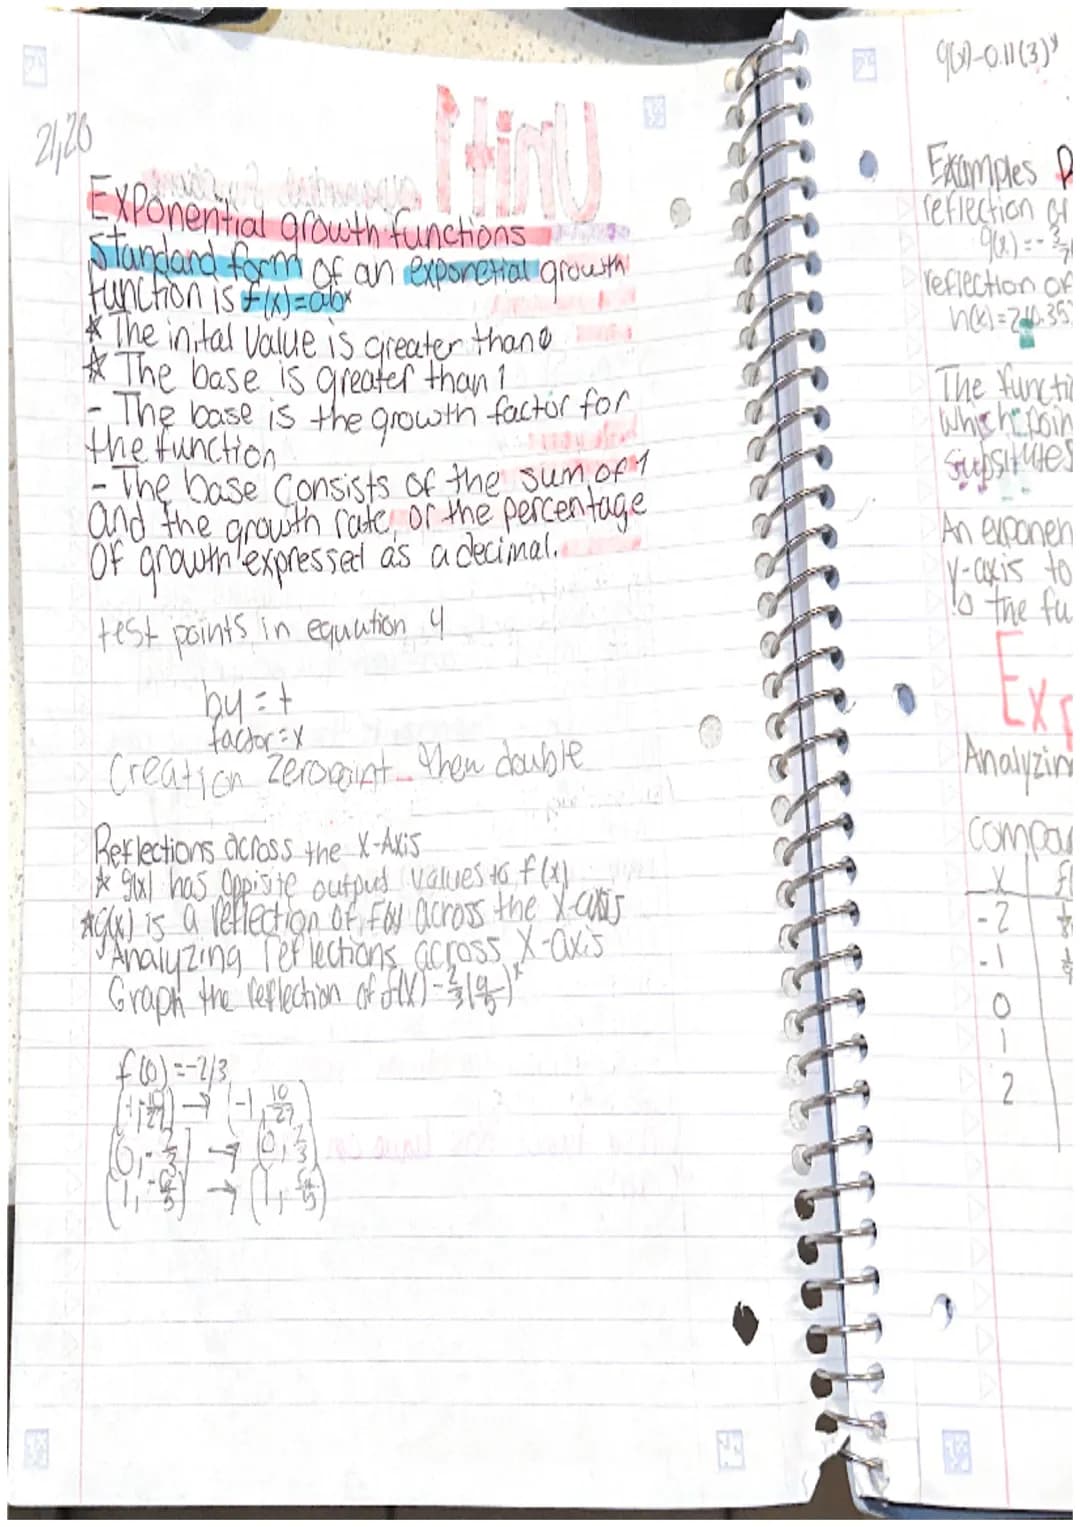 21,20
Exponential growth functions
Standard form of an exponetial growth
function is f(x)=abˣ
* The inital value is greater than 0
* The base is greater than 1
- The base is the growth factor for
the function
- The base consists of the sum of 1
and the growth rate, or the percentage
of growth expressed as a decimal.
test points in equation 4
by = t
factor = x
Creation zeropoint then double
Reflections across the X-Axis
* g(x) has oppisite output values to f(x)
* g(x) is a reflection of f(x) across the x-axis
Analyzing reflections across X-axis
Graph the reflection of f(x) -
f(0) = -2/3
→ (-1, 10/27)
→ (0, 2/3)
(1, → (1,
g(x)-0.11(3)ˣ
Examples
reflection of
g(x) = -
reflection of
h(x)=
The functi
which poin
substitutes
An exponen
y-axis to
to the fu
Exp
Analyzin
compar
x
-2
-1
0
1
2
Unit 1